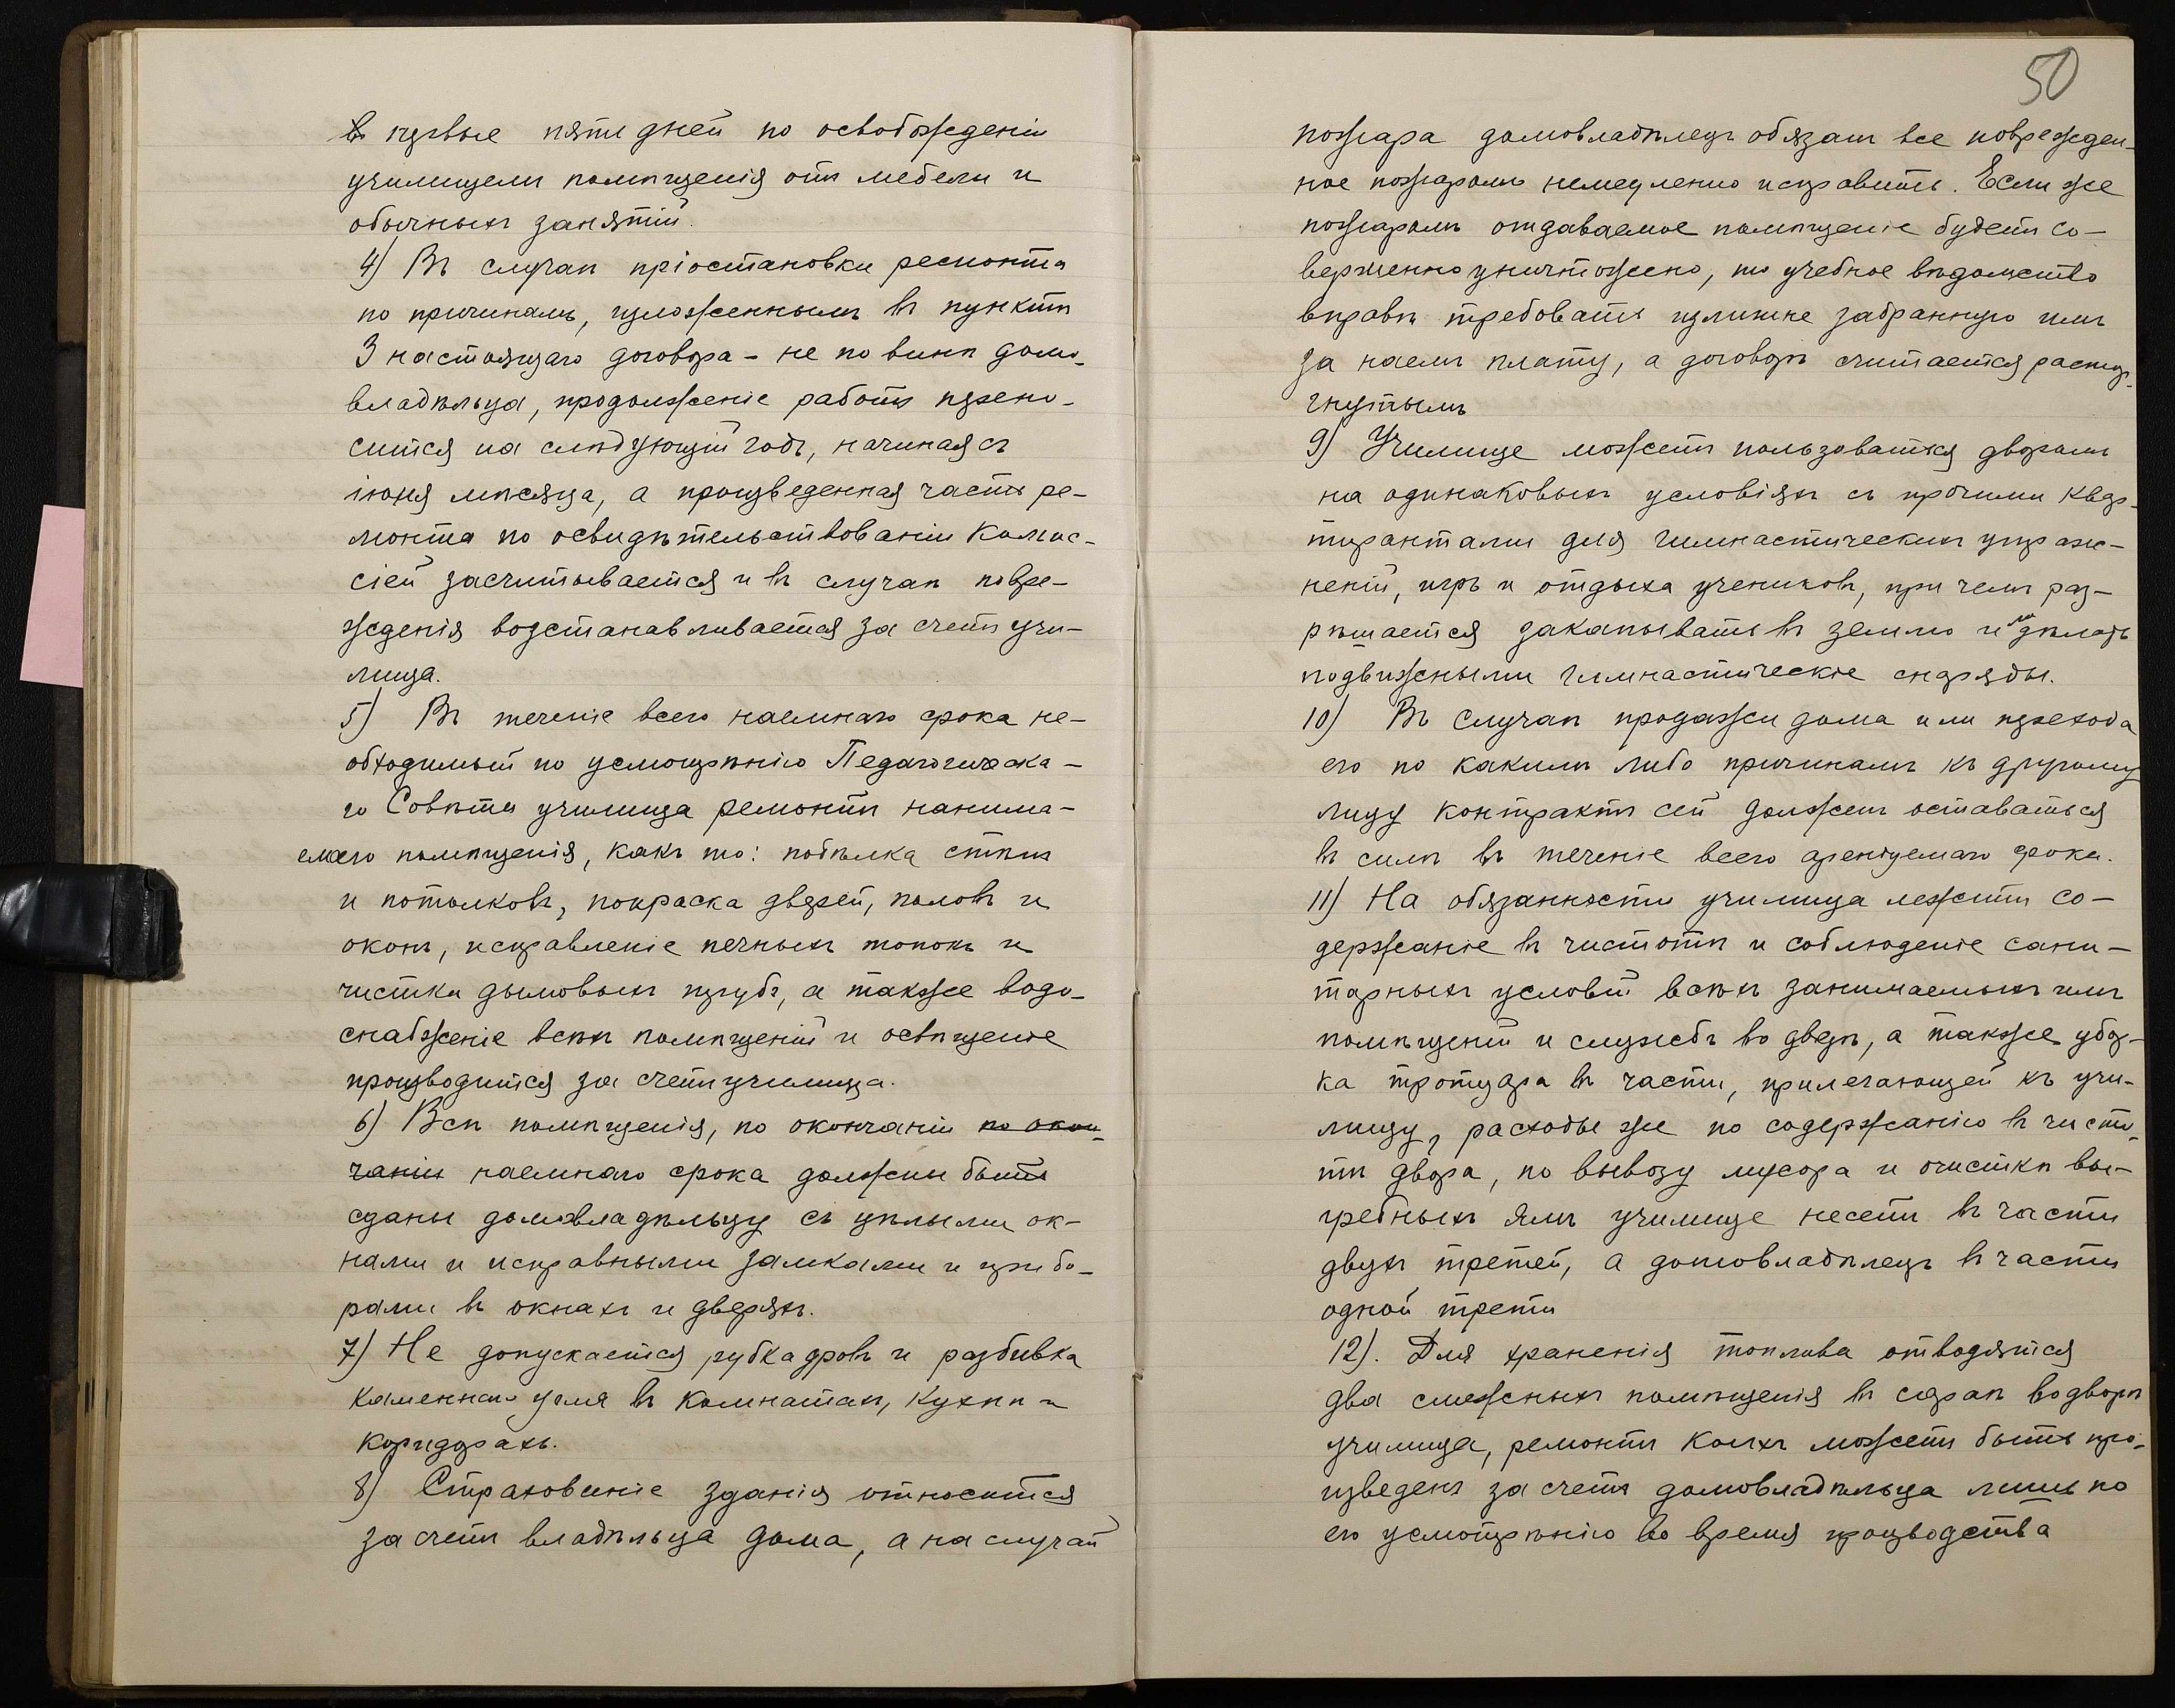 въ первые пяти дней по освобожденіи
училищемъ помѣщенія отъ мебели и
обычныхъ занятій.
4) Въ случаѣ пріостановки ремонта
по причинамъ, изложеннымъ въ пунктѣ
3 настоящаго договора – не по винѣ домо-
владѣльца, продолженіе работъ перено-
сится на слѣдующій годъ, начиная съ
іюня мѣсяца, а произведенная часть ре-
монта по освидѣтельствованіи комис-
сіей засчитывается и въ случаѣ повре-
жденія возстанавливается за счетъ учи-
лища.
5) Въ теченіе всего наемнаго срока не-
обходимый по усмотрѣнію Педагогическа-
го Совѣта училища ремонтъ нанима-
емаго помѣщенія, какъ то: побѣлка стѣнъ
и потолковъ, покраска дверей, половъ и
оконъ, исправленіе печныхъ топокъ и
чистка дымовыхъ трубъ, а также водо-
снабженіе всѣхъ помѣщеній и освѣщеніе
производится за счетъ училища.
6) Всѣ помѣщенія, по окончаніи по окон-
чаніи наемнаго срока должны быть
сданы домовладѣльцу съ цѣлыми ок-
нами и исправными замками и прибо-
рами въ окнахъ и дверяхъ.
7) Не допускается рубка дровъ и разбивка
каменнаго угля въ комнатах, кухнѣ и
коридорахъ.
8) Страхованіе зданія относится
за счетъ владѣльца дома, а на случай
50
пожара домовладѣлецъ обязанъ все поврежден-
ное пожаромъ немедленно исправить. Если же
пожаромъ отдаваемое помѣщеніе будетъ со-
вершенно уничтожено, то учебное вѣдомство
вправѣ требовать излишне забранную имъ
за наемъ плату, а договоръ считается растор-
гнутымъ
9) Училище можетъ пользоваться дворомъ
на одинаковыхъ условіяхъ съ прочими квар-
тирантами для гимнастическихъ упраж-
неній, игръ и отдыха учениковъ, при чемъ раз-
рѣшается закапывать въ землю и дѣлать
подвижными гимнастическіе снаряды.
10) Въ случаѣ продажи дома или перехода
его по какимъ либо причинамъ къ другому
лицу контрактъ сей долженъ оставаться
въ силѣ въ теченіе всего арендуемаго срока.
11) На обязанности училища лежитъ со-
держаніе въ чистотѣ и соблюденіе сани-
тарныхъ условій всѣхъ занимаемыхъ имъ
помѣщеній и службъ во дворѣ, а также убор-
ка тротуара въ части, прилегающей къ учи-
лищу, расходы же по содержанію въ чисто-
тѣ двора, по вывозу мусора и очисткѣ вы-
гребныхъ ямъ училище несетъ въ части
двухъ третей, а домовладѣлецъ въ части
одной трети
12). Для храненія топлива отводятся
два смежныхъ помѣщенія въ сараѣ во дворѣ
училища, ремонтъ коихъ можетъ быть про-
изведенъ за счетъ домовладѣльца лишь по
его усмотрѣнію во время производства